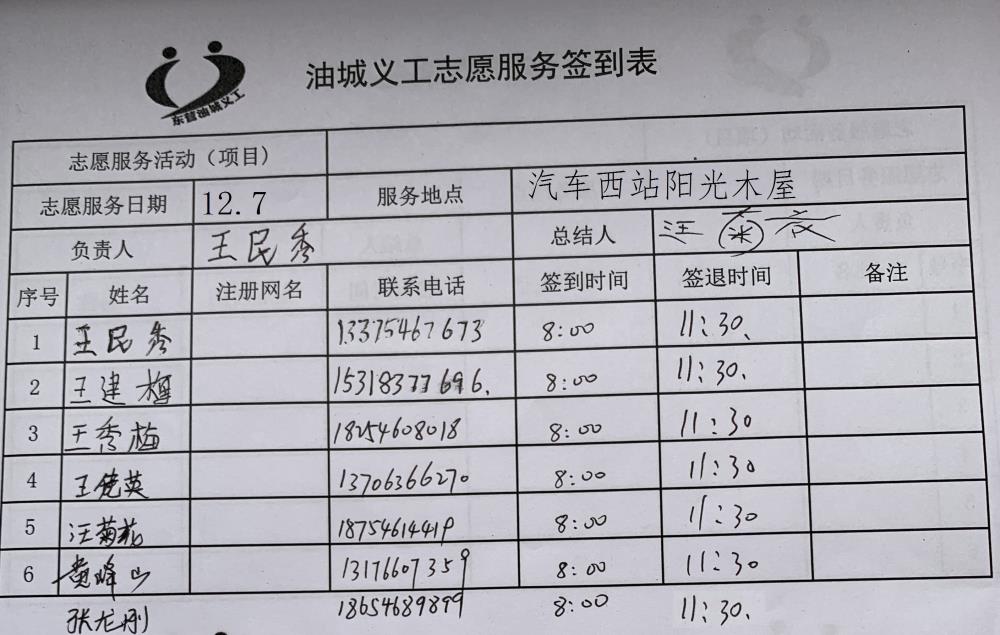 东营油城义工
油城义工志愿服务签到表
志愿服务活动（项目）
志愿服务日期 12.7 服务地点 汽车西站阳光木屋
负责人 王民秀 总结人 汪菊
序号 姓名 注册网名 联系电话 签到时间 签退时间 备注
1 王民秀 13375467673 8:00 11:30.
2 王建梅 15318377696. 8:00 11:30.
3 王秀梅 18254608018 8:00 11:30
4 王俊英 13706366270 8:00 11:30
5 汪菊花 18754614419 8:00 11:30
6 黄峰山 13176607359 8:00 11:30
张龙刚 18654689899 8:00 11:30.